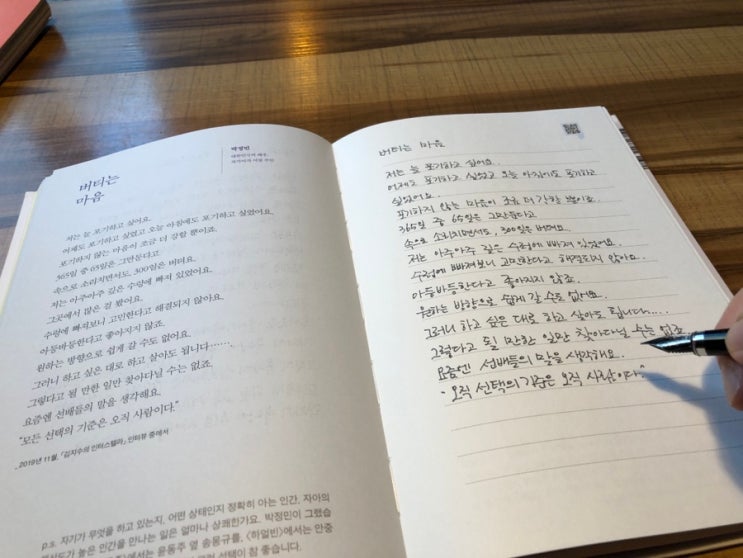 버티는
마음
박정민
대한민국의 배우,
저는 늘 포기하고 싶어요.
어제도 포기하고 싶었고 오늘 아침에도 포기하고 싶었어요.
포기하지 않는 마음이 조금 더 강할 뿐이죠.
365일 중 65일은 그만둔다고
속으로 소리치면서도, 300일은 버텨요.
저는 아주아주 깊은 수렁에 빠져 있었어요.
그곳에서 많은 걸 봤어요.
수렁에 빠져보니 고민한다고 해결되지 않아요.
아등바등한다고 좋아지지 않죠.
원하는 방향으로 쉽게 갈 수도 없어요.
그러니 하고 싶은 대로 하고 살아도 됩니다…….
그렇다고 될 만한 일만 찾아다닐 수는 없죠.
요즘엔 선배들의 말을 생각해요.
“모든 선택의 기준은 오직 사람이다.”
_ 2019년 11월, 「김지수의 인터스텔라」 인터뷰 중에서
p.s. 자기가 무엇을 하고 있는지, 어떤 상태인지 정확히 아는 인간, 자아의
해상도가 높은 인간을 만나는 일은 얼마나 상쾌한가요. 박정민이 그랬습
에서는 윤동주 옆 송몽규를, 〈하얼빈〉에서는 안중
선택이 참 좋습니다.
버티는 마음
저는 늘 포기하고 싶어요.
어제도 포기하고 싶었고 오늘 아침에도 포기하고
싶었어요.
포기하지 않는 마음이 조금 더 강할 뿐이죠.
365일 중 65일은 그만둔다고
속으로 소리치면서도, 300일은 버텨요.
저는 아주아주 깊은 수렁에 빠져 있었어요.
수렁에 빠져보니 고민한다고 해결되지 않아요.
아등바등한다고 좋아지지 않죠.
원하는 방향으로 쉽게 갈 수도 없어요.
그러니 하고 싶은 대로 하고 살아도 됩니다....
그렇다고 될 만한 일만 찾아다닐 수는 없죠.
요즘엔 선배들의 말을 생각해요.
"오직 선택의 기준은 오직 사람이다."